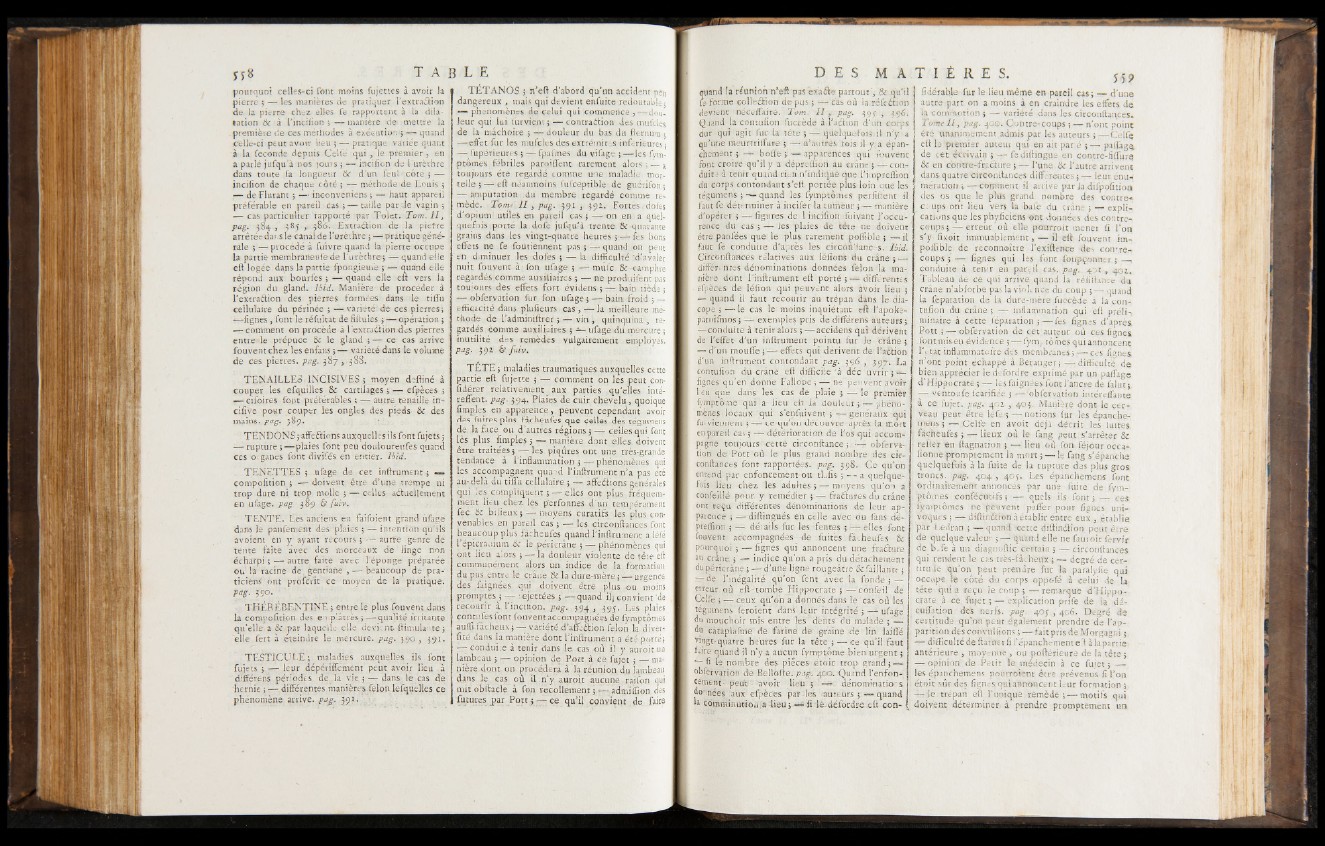 558 TABLE
pourquoi celles-ci font moins fujettes à avoir la
pierre ; — les manières de pratiquer l'extraction
de la pierre chez elles fe rapportent à la dila-
tation & à l'incifion ; — manière de mettre la
première de ces méthodes à exécution ; — quand
celle-ci peut avoir lieu ; — pratique variée quant
à la feconde depuis Celfe qui, le premier, en
a parlé jufqu'à nos jours ; — incifion de l'urèthre
dans toute la longueur & d'un feul côté ; —
incifion de chaque côté ; — méthode de Louis ;
— de Flurant ; — inconvéniens ; — haut appareil
préférable en pareil cas ; — taille par le vagin ;
— cas particulier rapporté par Tolet. Tom. II,
pag. 384, 385, 386. Extraction de la pierre
arrêtée dans le canal de l'urèthre ; — pratique géné-
rale ; — procédé à fuivre quand la pierre occupe
la partie membraneufe de l'urèthre ; — quand elle
eft logée dans la partie fpongieufe ; — quand elle
répond aux bourfes ; — quand elle eft vers la
région du gland. Ibid. Manière de procéder à
l'extraction des pierres formées dans le tiffu
cellulaire du périnée ; — variété de ces pierres ;
— fignes, font le réfultat de fiftules ; — opération ;
— comment on procède à l'extraction des pierres
entre le prépuce & le gland ; — ce cas arrive
fouvent chez les enfans ; — variété dans le volume
de ces pierres. pag. 387, 388.
TENAILLES INCISIVES ; moyen deftiné à
couper les efquilles & cartilages ; — efpèces ;
— celles font préférables ; — autre tenaille in-
cifive pour couper les ongles des pieds & des
mains. pag. 389.
TENDONS ; affections auxquelles ils font fujets ;
— rupture ; — plaies font peu douloureufes quand
ces organes font divifés en entier. Ibid.
TENETTES ; ufage de cet inftrument ; —
compofition ; — doivent être d'une trempe ni
trop dure ni trop molle ; — celles actuellement
en ufage. pag. 389 & fuiv.
TENTE. Les anciens en faifoient grand ufage
dans le panfement des plaies ; — intention qu'ils
avoient en y ayant recours ; — autre genre de
tente faite avec des morceaux de linge non
écharpi ; — autre faite avec l'éponge préparée
ou la racine de gentiane, — beaucoup de pra-
ticiens ont profcrit ce moyen de la pratique.
pag. 390.
THÉRÉBENTINE ; entre le plus fouvent dans
la compofition des emplâtres ; — qualité irritante
qu'elle a & par laquelle elle devient ftimulante ;
elle fert à éteindre le mercure. pag. 390, 391.
TESTICULE ; maladies auxquelles ils font
fujets ; — leur dépériffement peut avoir lieu à
différens périodes de la vie ; — dans le cas de
hernie ; — différentes manières felon lefquelles ce
phénomène arrive. pag. 391.
TÉTANOS ; n'eft d'abord qu'un accident peu
dangereux, mais qui devient enfuite redoutable ;
— phénomènes de celui qui commence ; — dou-
leur qui lui furvient ; — contraction des mufcles
de la mâchoire ; — douleur du bas du fternum ;
— effet fur les mufcles des extrémités inférieures ;
— fupérieures ; — fpafmes du vifage ; — les fym-
ptômes fébriles paroiffent rarement alors ; — a
toujours été regardé comme une maladie mor-
telle ; — eft néanmoins fufceptible de guérifon ;
— amputation du membre regardé comme re-
mède. Tom. II, pag. 391, 392. Fortes dofes
d'opium utiles en pareil cas ; — on en a quel-
quefois porté la dofe jufqu'à trente & quarante
grains dans les vingt-quatre heures ; — fes bons
effets ne fe foutiennent pas ; — quand on peut
en diminuer les dofes ; — la difficulté d'avaler
nuit fouvent à fon ufage ; — mufc & camphre
regardés comme auxiliaires ; — ne produifent pas
toujours des effets fort évidens ; — bain tiède ;
— obfervation fur fon ufage ; — bain froid ; —
efficacité dans plufieurs cas, — la meilleure mé-
thode de l'adminiftrer ; — vin, quinquina, re-
gardés comme auxiliaires ; — ufage du mercure ;
inutilité des remèdes vulgairement employés.
pag. 392 & fuiv.
TÊTE ; maladies traumatiques auxquelles cette
partie eft fujette ; — comment on les peut con-
fidérer relativement aux parties qu'elles inté-
reffent. pag. 394. Plaies de cuir chevelu, quoique
fimples en apparence, peuvent cependant avoir
des fuites plus fâcheufes que celles des tégumens
de la face ou d'autres régions ; — celles qui font
les plus fimples ; — manière dont elles doivent
être traitées ; — les piqûres ont une très-grande
tendance à l'inflammation ; — phénomènes qui
les accompagnent quand l'inftrument n'a pas été
au-delà du tiffu cellulaire ; — affections générales
qui les compliquent ; — elles ont plus fréquem-
ment lieu chez les perfonnes d'un tempérament
fec & bilieux ; — moyens curatifs les plus con-
venables en pareil cas ; — les circonftances font
beaucoup plus fâcheufes quand l'inftrument a léfé
l'épicrânium & le péricrâne ; — phénomènes qui
ont lieu alors ; — la douleur violente de tête eft
communément alors un indice de la formation
du pus entre le crâne & la dure-mère ; — urgence
des faignées qui doivent être plus ou moins
promptes ; — rejettées ; — quand il convient de
recourir à l'incifion. pag. 394, 395. Les plaies
contufes font fouvent accompagnées de fymptômes
auffi fâcheux ; — variété d'affection felon la diver-
fité dans la manière dont l'inftrument a été porté ;
— conduite à tenir dans le cas où il y auroit un
lambeau ; — opinion de Pott à ce fujet ; — ma-
nière dont on procédera à la réunion du lambeau
dans le cas où il n'y auroit aucune raifon qui
mît obftacle à fon recollement ; — admiffion des
futures par Pott ; — ce qu'il convient de faire
DES MATIÈRES. 559
quand la réunion n'eft pas exacte partout, & qu'il
fe forme collection de pus ; — cas où la réfection
devient néceffaire. Tom. II, pag. 395, 396.
Quand la contufion fuccède à l'action d'un corps
dur qui agit fur la tête ; — quelquefois il n'y a
qu'une meurtriffure ; — d'autres fois il y a épan-
chement ; — boffe ; — apparences qui fouvent
font croire qu'il y a dépreffion au crâne ; — con-
duite à tenir quand rien n'indique que l'impreffion
du corps contondant s'eft portée plus loin que les
tégumens ; — quand les fymptômes perfiftent il
faut fe déterminer à incifer la tumeur ; — manière
d'opérer ; — figures de l'incifion fuivant l'occu-
rence du cas ; — les plaies de tête ne doivent
être panfées que le plus rarement poffible ; — il
faut fe conduire d'après les circonftances. Ibid.
Circonftances relatives aux léfions du crâne ; —
différentes dénominations données felon la ma-
nière dont l'inftrument eft porté ; — différentes
efpèces de léfion qui peuvent alors avoir lieu ;
— quand il faut recourir au trépan dans le dia-
copé ; — le cas le moins inquiétant eft l'apofke-
parnifmos ; — exemples pris de différens auteurs ;
— conduite à tenir alors ; — accidens qui dérivent
de l'effet d'un inftrument pointu fur le crâne ;
— d'un mouffe ; — effets qui dérivent de l'action
d'un inftrument contondant. pag. 396, 397. La
contufion du crâne eft difficile à découvrir ; —
fignes qu'en donne Fallope ; — ne peuvent avoir
lieu que dans les cas de plaie ; — le premier
fymptôme qui a lieu eft la douleur ; — phéno-
mènes locaux qui s'enfuivent ; — généraux qui
furviennent ; — ce qu'on découvre après la mort
en pareil cas ; — détérioration de l'os qui accom-
pagne toujours cette circonftance ; — obferva-
tion de Pott où le plus grand nombre des cir-
conftances font rapportées. pag. 398. Ce qu'on
entend par enfoncement ou thlafis ; — a quelque-
fois lieu chez les adultes ; — moyens qu'on a
confeillé pour y remédier ; — fractures du crâne
ont reçu différentes dénominations de leur ap-
parence ; — diftinguées en celle avec ou fans dé-
preffion ; — détails fur les fentes ; — elles font
fouvent accompagnées de fuites fâcheufes &
pourquoi ; — fignes qui annoncent une fracture
au crâne ; — indice qu'on a pris du détachement
du péricrâne ; — d'une ligne rougeâtre & faillante ;
— de l'inégalité qu'on fent avec la fonde ; —
erreur où eft tombé Hippocrate ; — confeil de
Celfe ; — ceux qu'on a donnés dans le cas où les
tégumens feroient dans leur intégrité ; — ufage
du mouchoir mis entre les dents du malade ; —
de cataplafme de farine de graine de lin laiffé
vingt-quatre heures fur la tête ; — ce qu'il faut
faire quand il n'y a aucun fymptôme bien urgent ;
— fi le nombre des pièces étoit trop grand ; —
obfervation de Bellofte. pag. 400. Quand l'enfon-
cement peut avoir lieu ; — dénominations
données aux efpèces par les auteurs ; — quand
la comminution a lieu ; — fi le défordre eft con-
fidérable fur le lieu même en pareil cas ; — d'une
autre part on a moins à en craindre les effets de
la commotion ; — variété dans les circonftances.
Tome II, pag. 400. Contre-coups ; — n'ont point
été unanimement admis par les auteurs ; — Celfe
eft le premier auteur qui en ait parlé ; — paffage
de cet écrivain ; — fe diftingue en contre-fiffure
& en contre-fracture ; — l'une & l'autre arrivent
dans quatre circonftances différentes ; — leur énu-
mération ; — comment il arrive par la difpofition
des os que le plus grand nombre des contre-
coups ont lieu vers la bafe du crâne ; — expli-
cations que les phyficiens ont données des contre-
coups ; — erreur où elle pourroit mener fi l'on
s'y fixoit immuablement, — il eft fouvent im-
poffible de reconnoître l'exiftence des contre-
coups ; — fignes qui les font foupçonner ; —
conduite à tenir en pareil cas. pag. 401, 402.
Tableau de ce qui arrive quand la réfiftance du
crâne n'abforbe pas la violence du coup ; — quand
la féparation de la dure-mère fuccède à la con-
tufion du crâne ; — inflammation qui eft préli-
minaire à cette féparation ; — fes fignes d'après
Pott ; — obfervation de cet auteur où ces fignes
font mis en évidence ; — fymptômes qui annoncent
l'état inflammatoire des membranes ; — ces fignes
n'ont point échappé à Béranger ; — difficulté de
bien apprécier le défordre exprimé par un paffage
d'Hippocrate ; — les faignées font l'ancre de falut ;
— ventoufe fcarifiée ; — obfervation intéreffante
à ce fujet. pag. 402, 403. Manière dont le cer-
veau peut être léfé ; — notions fur les épanche-
mens ; — Celfe en avoit déjà décrit les fuites
fâcheufes ; — lieux où le fang peut s'arrêter &
refter en ftagnation ; — lieu où fon féjour occa-
fionne promptement la mort ; — le fang s'épanche
quelquefois à la fuite de la rupture des plus gros
troncs. pag. 404, 405. Les épanchemens font
ordinairement annoncés par une fuite de fym-
ptômes confécutifs ; — quels ils font ; — ces
fymptômes ne peuvent paffer pour fignes uni-
voques ; — diftinction à établir entre eux, établie
par Ledran ; — quand cette diftinction peut être
de quelque valeur ; — quand elle ne fauroit fervir
de bafe à un diagnoftic certain ; — circonftances
qui rendent le cas très-fâcheux ; — degré de cer-
titude qu'on peut prendre fur la paralyfie qui
occupe le côté du corps oppofé à celui de la
tête qui a reçu le coup ; — remarque d'Hippo-
crate à ce fujet ; — explication prife de la dé-
cuffation des nerfs. pag. 405, 406. Degré de
certitude qu'on peut également prendre de l'ap-
parition des convulfions ; — fait pris de Morgagni ;
— difficulté de ftatuer fi l'épanchement eft à la partie
antérieure, moyenne, ou poftérieure de la tête ;
— opinion de Petit le médecin à ce fujet ; —
les épanchemens pourroient être prévenus fi l'on
étoit sûr des fignes qui annoncent leur formation ;
— le trépan eft l'unique remède ; — motifs qui
doivent déterminer à prendre promptement un